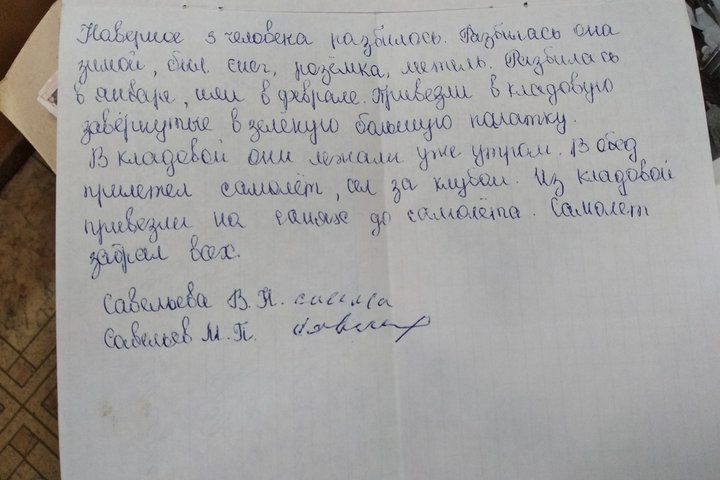 Наверное 3 человека разбилось. Разбилась она
зимой, был снег, розёмка, метель. Разбилась
в январе, или в феврале. Привезли в кладовую
завёрнутые в зелёную большую палатку.
В кладовой они лежали уже утром. В обед
прилетел самолёт, сел за клубом. Из кладовой
привезли на санях до самолёта. Самолёт
забрал всех.
Савельева В.П.
Савельев М.П.